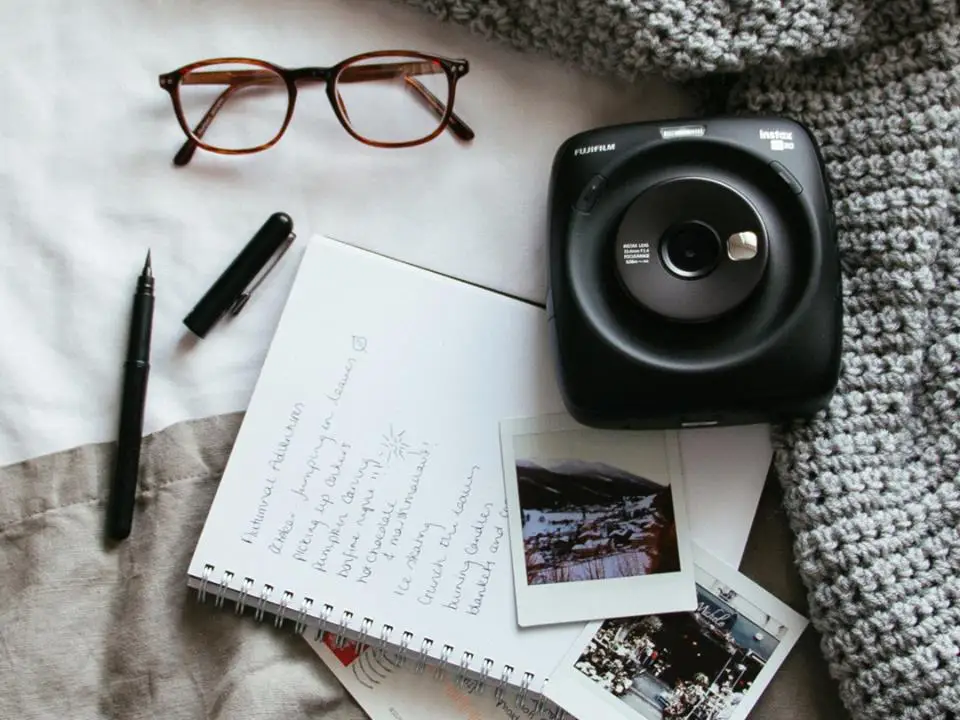 FUJIFILM
instax
Autumnal Adventures
Jumping in leaves
Picking up conkers
pumpkin carving
bonfire nights !!!
hot chocolate
& marshmallows!
Ice skating
Crunch the leaves
burning candles
blankets and